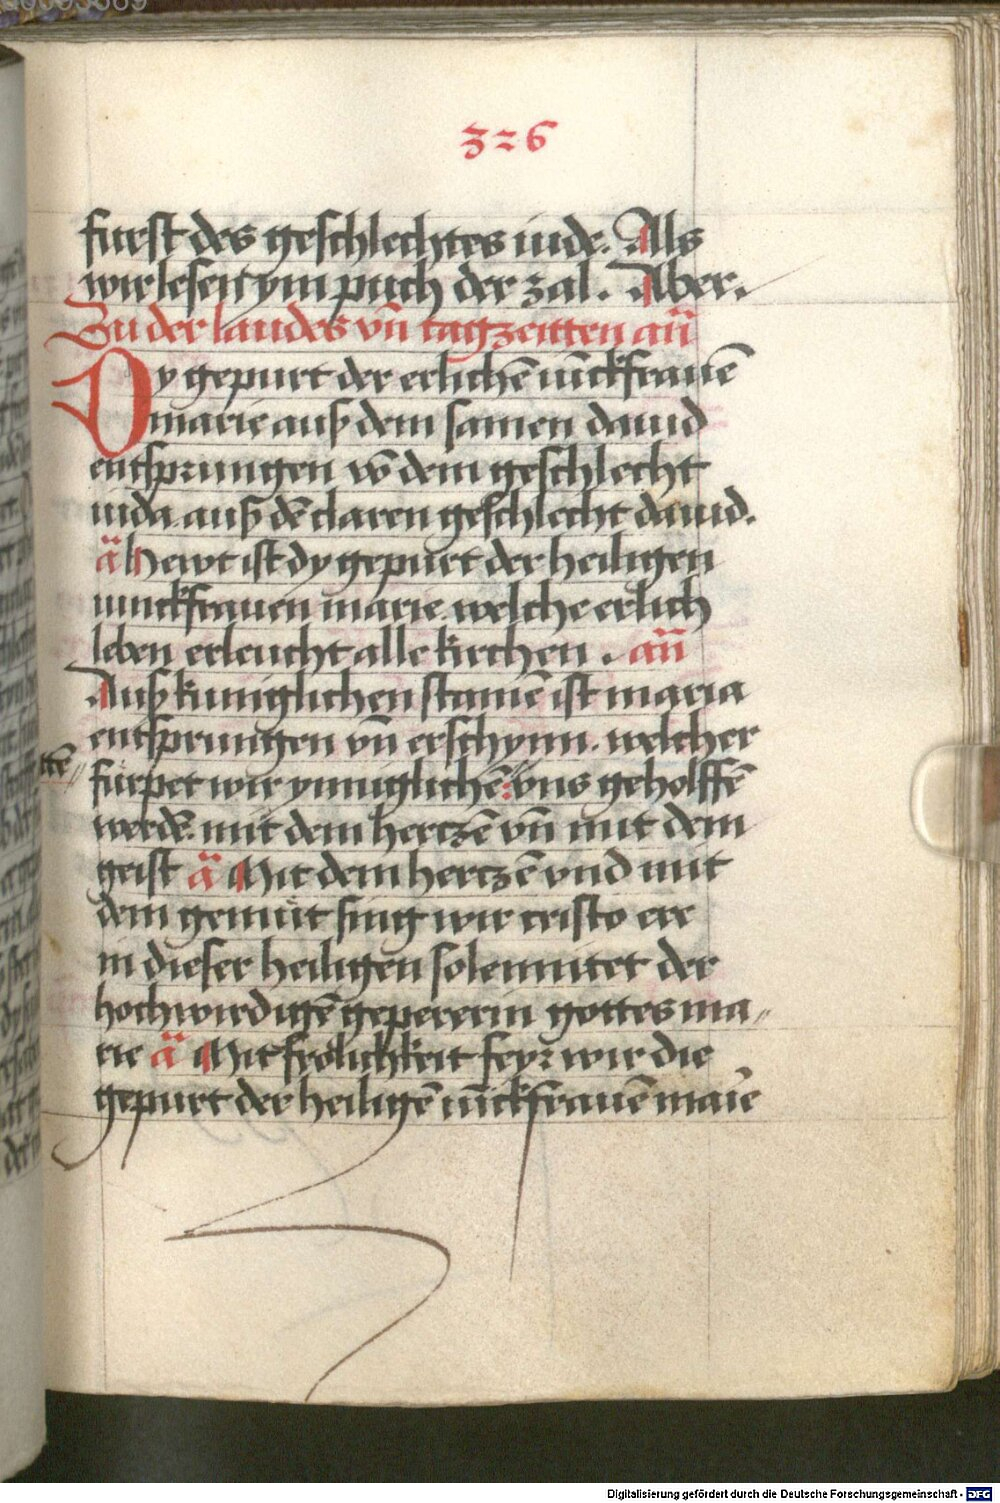 326
furst des geschlechtes iude. Als
wir lesen ym puch der zal. Aber.
Zu der laudes vñ tagzeitten añ
Dy gepurt der erlichē iũckfrauē
marie auß dem samen dauid
entsprungen võ dem geschlecht
iuda. auß dē claren geschlecht dauid.
ā Hewt ist dy gepurt der heiligen
iunckfrauen marie. welche erlich
leben erleucht alle kirchen. añ
Auß kuniglichen stamē ist maria
entsprungen vñ erschynn. welcher
fürpet wir ynniglichē vns geholffē
werdē. mit dem hertzē vñ mit dem
geist ā Mit dem hertzē vnd mit
dem gemüt sing wir cristo ere
in dieser heiligen solennitet der
hochwirdigē gepererin gottes ma//
rie ā Mit frölichkeit feyr wir die
gepurt der heiligē iũckfrauē maīe
Digitalisierung gefördert durch die Deutsche Forschungsgemeinschaft - DFG